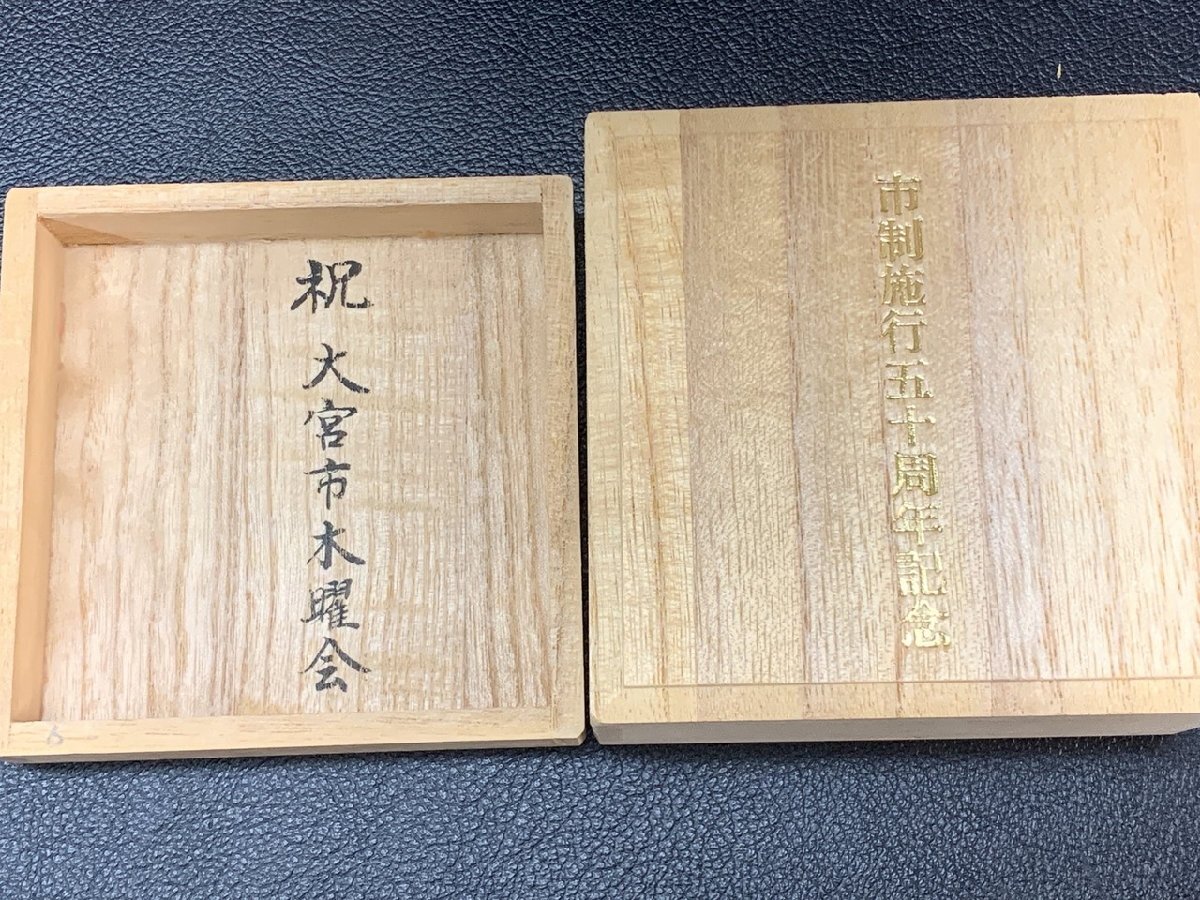 祝 大宮市木曜会
市制施行五十周年記念